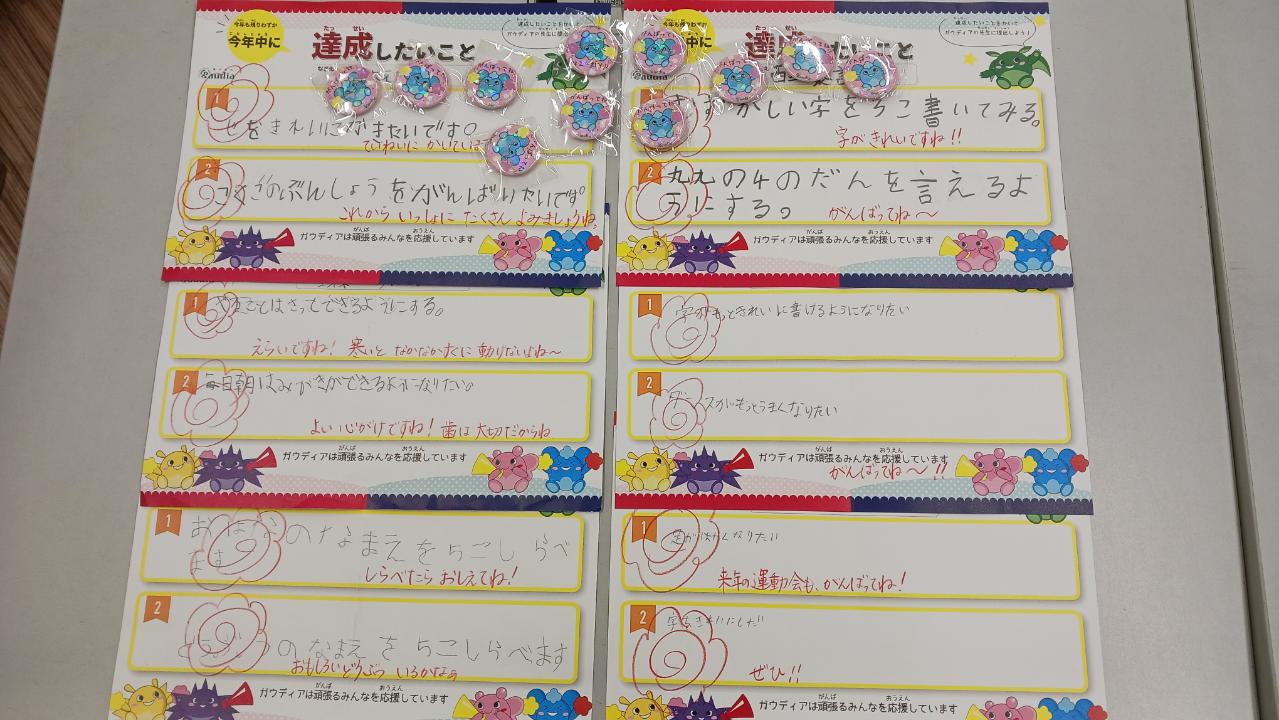 今年も残りわずか
今年中に
達成したいこと
達成したいことをかいて
ガウディアの先生に提出しよう!
Gaudia
1
じをきれいにかきたいです。
ていねいに かいている
2
こくごのぶんしょうをがんばりたいです。
これから いっしょに たくさん よみましょうね。
ガウディアは頑張るみんなを応援しています
1
やることはさってできるようにする。
えらいですね! 寒いと なかなか
2
毎日朝はみがきができるようになりたい。
よい心がけですね! 歯は大切だからね
ガウディアは頑張るみんなを応援しています
1
おはなのなまえを5こしらべ
ます
しらべたら おしえてね!
2
どうぶつのなまえを5こしらべます
おもしろいどうぶつ いるかなぁ
ガウディアは頑張るみんなを応援しています
今年も残りわずか
中に
達成したいこと
達成したいことをかいて
ガウディアの先生に提出しよう!
audia
むずかしい字を5こ書いてみる。
字がきれいですね!!
2
九九の4のだんを言えるよ
うにする。
がんばってね〜
ガウディアは頑張るみんなを応援しています
1
字がもっときれいに書けるようになりたい
2
ダンスがもっとうまくなりたい
ガウディアは頑張るみんなを応援しています
がんばってね〜!!
1
足がはやくなりたい
来年の運動会も、がんばってね!
2
字をきれいにしたい
ぜひ!!
ガウディアは頑張るみんなを応援しています